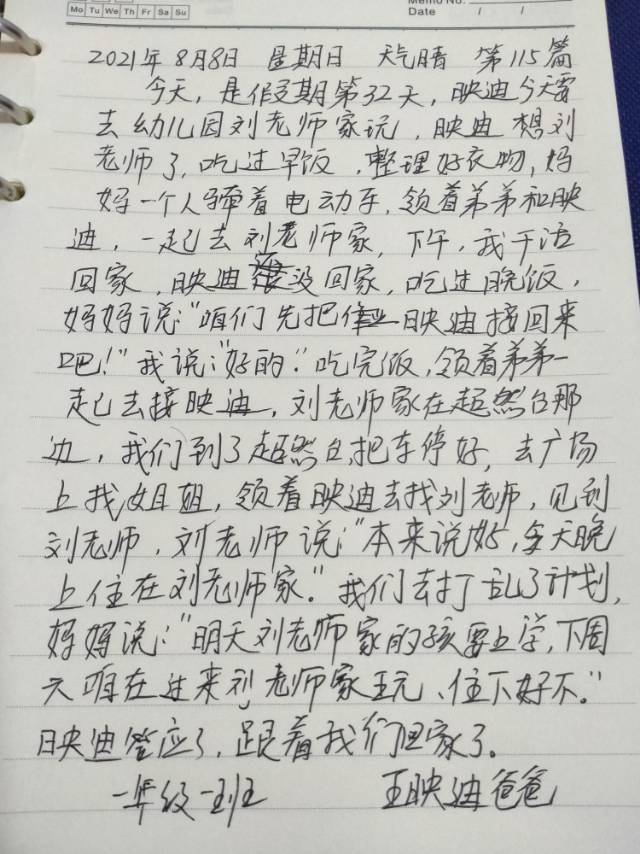 Mo Tu We Th Fr Sa Su
Memo No.
Date / /
2021年8月8日 星期日 天气晴 第115篇
今天,是假期第32天,映迪今天要
去幼儿园刘老师家玩,映迪想刘
老师了,吃过早饭,整理好衣物,妈
妈一个人骑着电动车,领着弟弟和映
迪,一起去刘老师家,下午,我干活
回家,映迪还没回家,吃过晚饭,
妈妈说:“咱们先把映迪接回来
吧!”我说:“好的.”吃完饭,领着弟弟一
起去接映迪,刘老师家在超然台那
边,我们到了超然台,把车停好,去广场
上找姐姐,领着映迪去找刘老师,见到
刘老师,刘老师说:“本来说好,今天晚
上住在刘老师家.”我们去打乱了计划,
妈妈说:“明天刘老师家的孩要上学,下周
六咱在过来刘老师家玩、住下好不.”
映迪答应了,跟着我们回家了。
一年级一班 王映迪爸爸